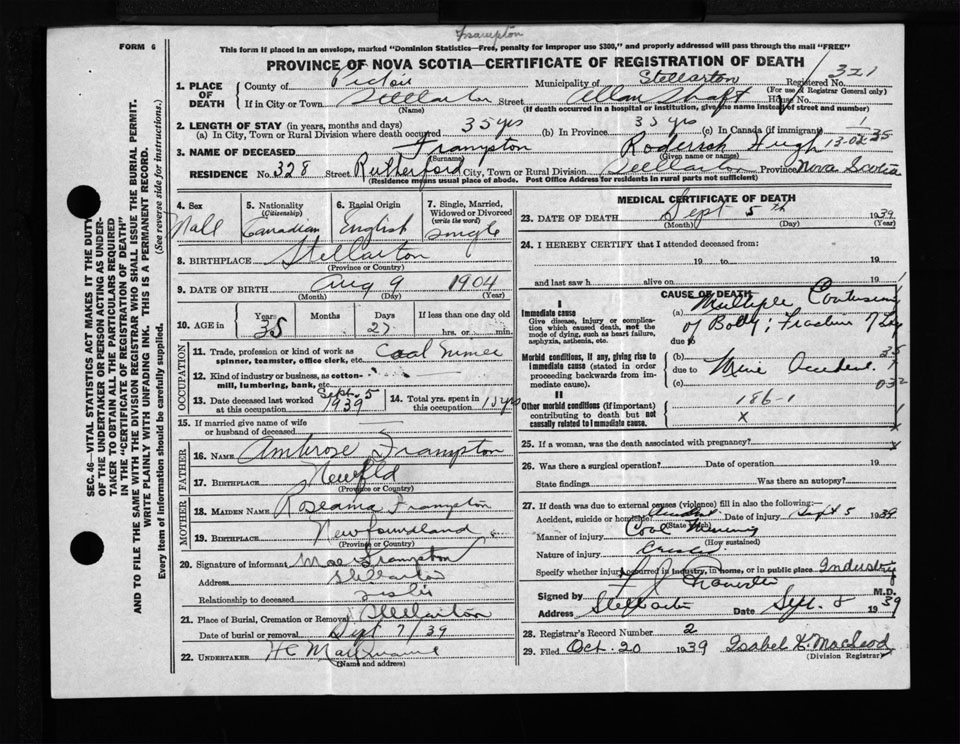 Frampton
FORM 6
This form if placed in an envelope, marked "Dominion Statistics—Free, penalty for improper use $300," and properly addressed will pass through the mail "FREE"
PROVINCE OF NOVA SCOTIA—CERTIFICATE OF REGISTRATION OF DEATH
Registered No. 321
(For use of Registrar General only)
1. PLACE OF DEATH
County of Pictou Municipality of Stellarton
If in City or Town Stellarton Street Allan Shaft House No.
(Name) (If death occurred in a hospital or institution, give the name instead of street and number)
2. LENGTH OF STAY (in years, months and days)
(a) In City, Town or Rural Division where death occurred 35 yrs (b) In Province 35 yrs (c) In Canada (if immigrant)
3. NAME OF DECEASED Frampton Roderick Hugh
(Surname) (Given name or names)
RESIDENCE No. 328 Street Rutherford City, Town or Rural Division Stellarton Province Nova Scotia
(Residence means usual place of abode. Post Office Address for residents in rural parts not sufficient)
4. Sex Male
5. Nationality (Citizenship) Canadian
6. Racial Origin English
7. Single, Married, Widowed or Divorced (write the word) Single
8. BIRTHPLACE Stellarton
(Province or Country)
9. DATE OF BIRTH Aug 9 1904
(Month) (Day) (Year)
10. AGE in Years 35 Months Days 27 If less than one day old hrs. or min.
OCCUPATION
11. Trade, profession or kind of work as spinner, teamster, office clerk, etc. Coal Miner
12. Kind of industry or business, as cotton-mill, lumbering, bank, etc.
13. Date deceased last worked at this occupation Sept. 5 1939
14. Total yrs. spent in this occupation 15 yrs
15. If married give name of wife or husband of deceased
FATHER
16. NAME Ambrose Frampton
17. BIRTHPLACE Newfld
(Province or Country)
MOTHER
18. MAIDEN NAME Roseanna Frampton
19. BIRTHPLACE Newfoundland
(Province or Country)
20. Signature of informant Mae Frampton
Address Stellarton
Relationship to deceased Sister
21. Place of Burial, Cremation or Removal Stellarton
Date of burial or removal Sept 7/39
22. UNDERTAKER
(Name and address)
MEDICAL CERTIFICATE OF DEATH
23. DATE OF DEATH Sept 5th 1939
(Month) (Day)
24. I HEREBY CERTIFY that I attended deceased from:
19 to 19
and last saw h alive on 19
CAUSE OF DEATH
I
Immediate cause
Give disease, injury or complication which caused death, not the mode of dying, such as heart failure, asphyxia, asthenia, etc.
(a) Multiple Contusions of Body; Fracture
due to
Morbid conditions, if any, giving rise to immediate cause (stated in order proceeding backwards from immediate cause).
(b) Mine Accident
due to
(c)
II
Other morbid conditions (if important) contributing to death but not causally related to immediate cause.
186-1
x
25. If a woman, was the death associated with pregnancy?
26. Was there a surgical operation? Date of operation 19
State findings Was there an autopsy?
27. If death was due to external causes (violence) fill in also the following:—
Accident, suicide or homicide? Accident Date of injury Sept 5 1939
(State which)
Manner of injury Coal Mining
(How sustained)
Nature of injury
Specify whether injury occurred in industry, in home, or in public place Industry
Signed by M.D.
Address Stellarton Date Sept. 8 1939
28. Registrar's Record Number 2
29. Filed Oct. 20 1939 Isabel K. MacLeod
(Division Registrar)
SEC. 46—VITAL STATISTICS ACT MAKES IT THE DUTY
OF THE UNDERTAKER OR PERSON ACTING AS UNDER-
TAKER TO OBTAIN ALL THE PARTICULARS REQUIRED
IN THE "CERTIFICATE OF REGISTRATION OF DEATH"
AND TO FILE THE SAME WITH THE DIVISION REGISTRAR WHO SHALL ISSUE THE BURIAL PERMIT.
WRITE PLAINLY WITH UNFADING INK. THIS IS A PERMANENT RECORD.
Every item of Information should be carefully supplied. (See reverse side for instructions.)